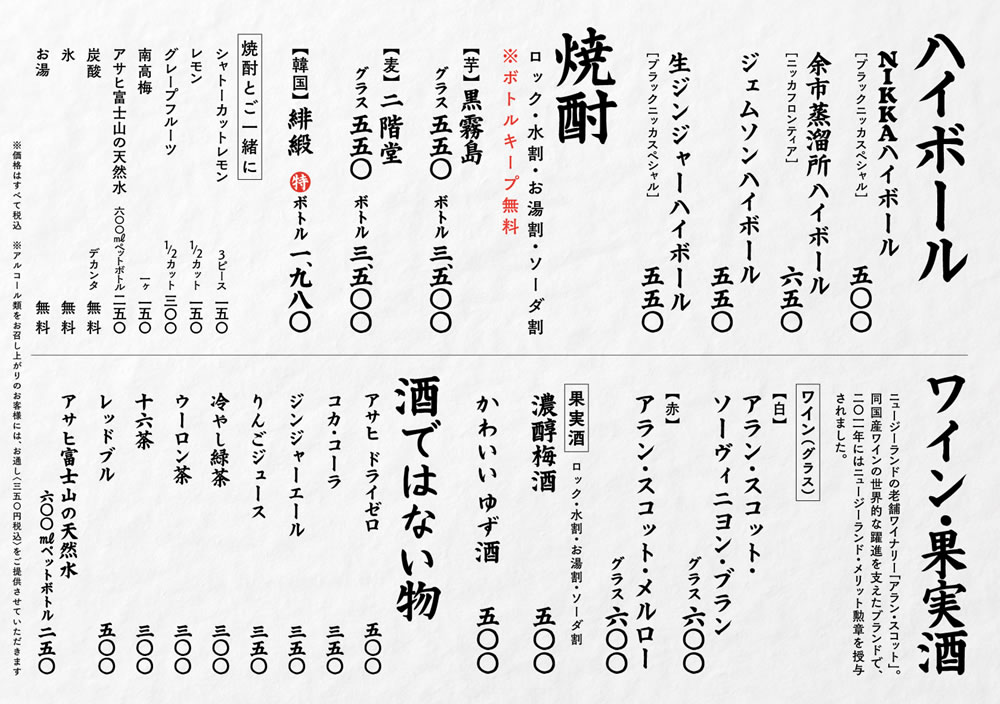 ハイボール
NIKKAハイボール
[ブラックニッカスペシャル]
五〇〇
余市蒸溜所ハイボール
[ニッカフロンティア]
六五〇
ジェムソンハイボール
五五〇
生ジンジャーハイボール
[ブラックニッカスペシャル]
五五〇
焼酎
ロック・水割・お湯割・ソーダ割
※ボトルキープ無料
【芋】黒霧島
グラス 五五〇 ボトル 三、五〇〇
【麦】二階堂
グラス 五五〇 ボトル 三、五〇〇
【韓国】緋緞 特 ボトル 一、九八〇
焼酎とご一緒に
シャトーカットレモン 3ピース 一五〇
レモン 1/2カット 一五〇
グレープフルーツ 1/2カット 三〇〇
南高梅 一ヶ 一五〇
アサヒ富士山の天然水 六〇〇mlペットボトル 二五〇
炭酸 デカンタ 無料
氷 無料
お湯 無料
ワイン・果実酒
ニュージーランドの老舗ワイナリー「アラン・スコット」。
同国産ワインの世界的な躍進を支えたブランドで、
二〇一一年にはニュージーランド・メリット勲章を授与
されました。
ワイン(グラス)
【白】
アラン・スコット・
ソーヴィニヨン・ブラン
グラス 六〇〇
【赤】
アラン・スコット・メルロー
グラス 六〇〇
果実酒 ロック・水割・お湯割・ソーダ割
濃醇梅酒 五〇〇
かわいいゆず酒 五〇〇
酒ではない物
アサヒ ドライゼロ 五〇〇
コカ・コーラ 三五〇
ジンジャーエール 三五〇
りんごジュース 三五〇
冷やし緑茶 三〇〇
ウーロン茶 三〇〇
十六茶 三〇〇
レッドブル 五〇〇
アサヒ富士山の天然水
六〇〇mlペットボトル 二五〇
※価格はすべて税込 ※アルコール類をお召し上がりのお客様には、お通し(三五〇円税込)をご提供させていただきます